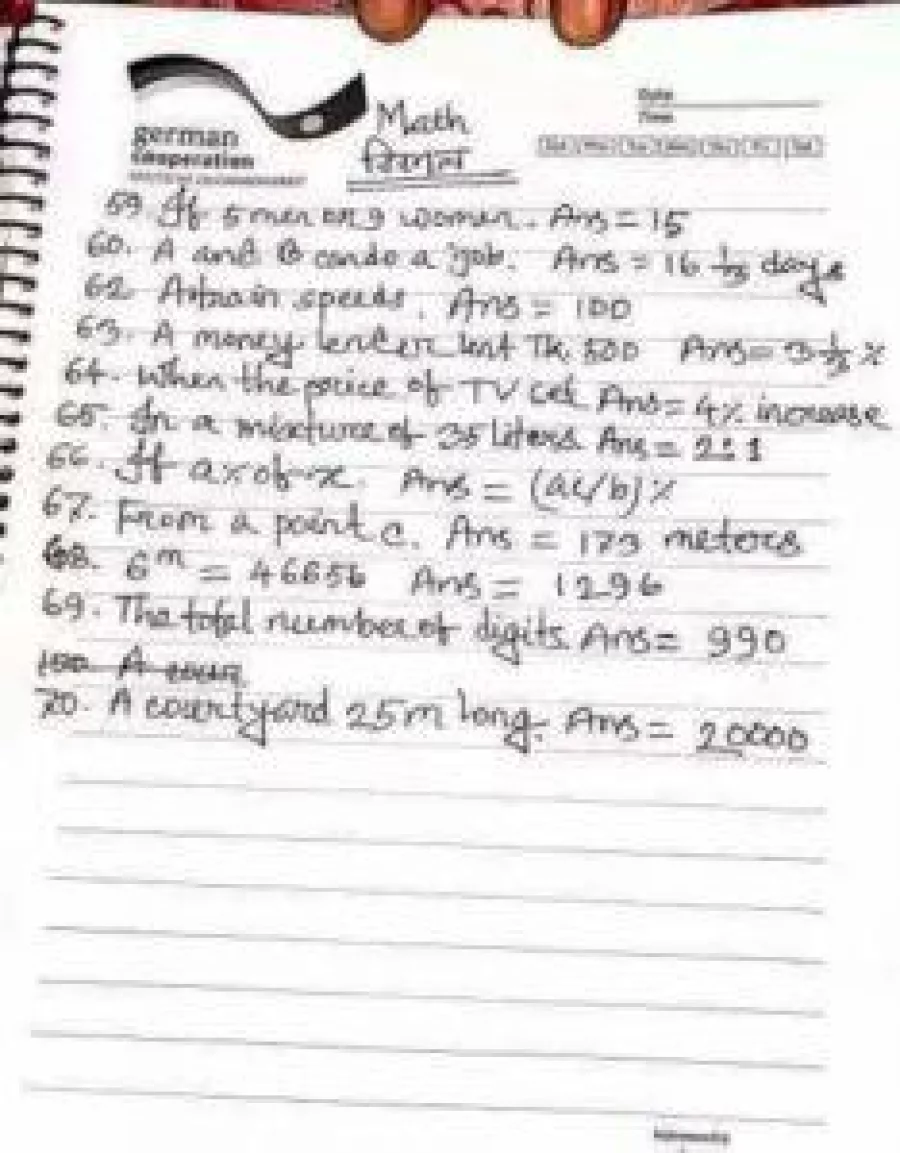 german
cooperation
Math
Date
Time
59. If 5 men or 9 women. Ans = 15
60. A and B can do a job. Ans = 16 1/3 days
62. A train speeds. Ans = 100
63. A money lender lent Tk. 500 Ans = 3 1/3 %
64. When the price of TV set Ans = 4% increase
65. In a mixture of 35 liters Ans = 2:1
66. If a% of x. Ans = (ac/b)%
67. From a point c. Ans = 173 meters
68. 6^m = 46656 Ans = 1296
69. The total number of digits. Ans = 990
100 A cour
70. A courtyard 25m long. Ans = 20000